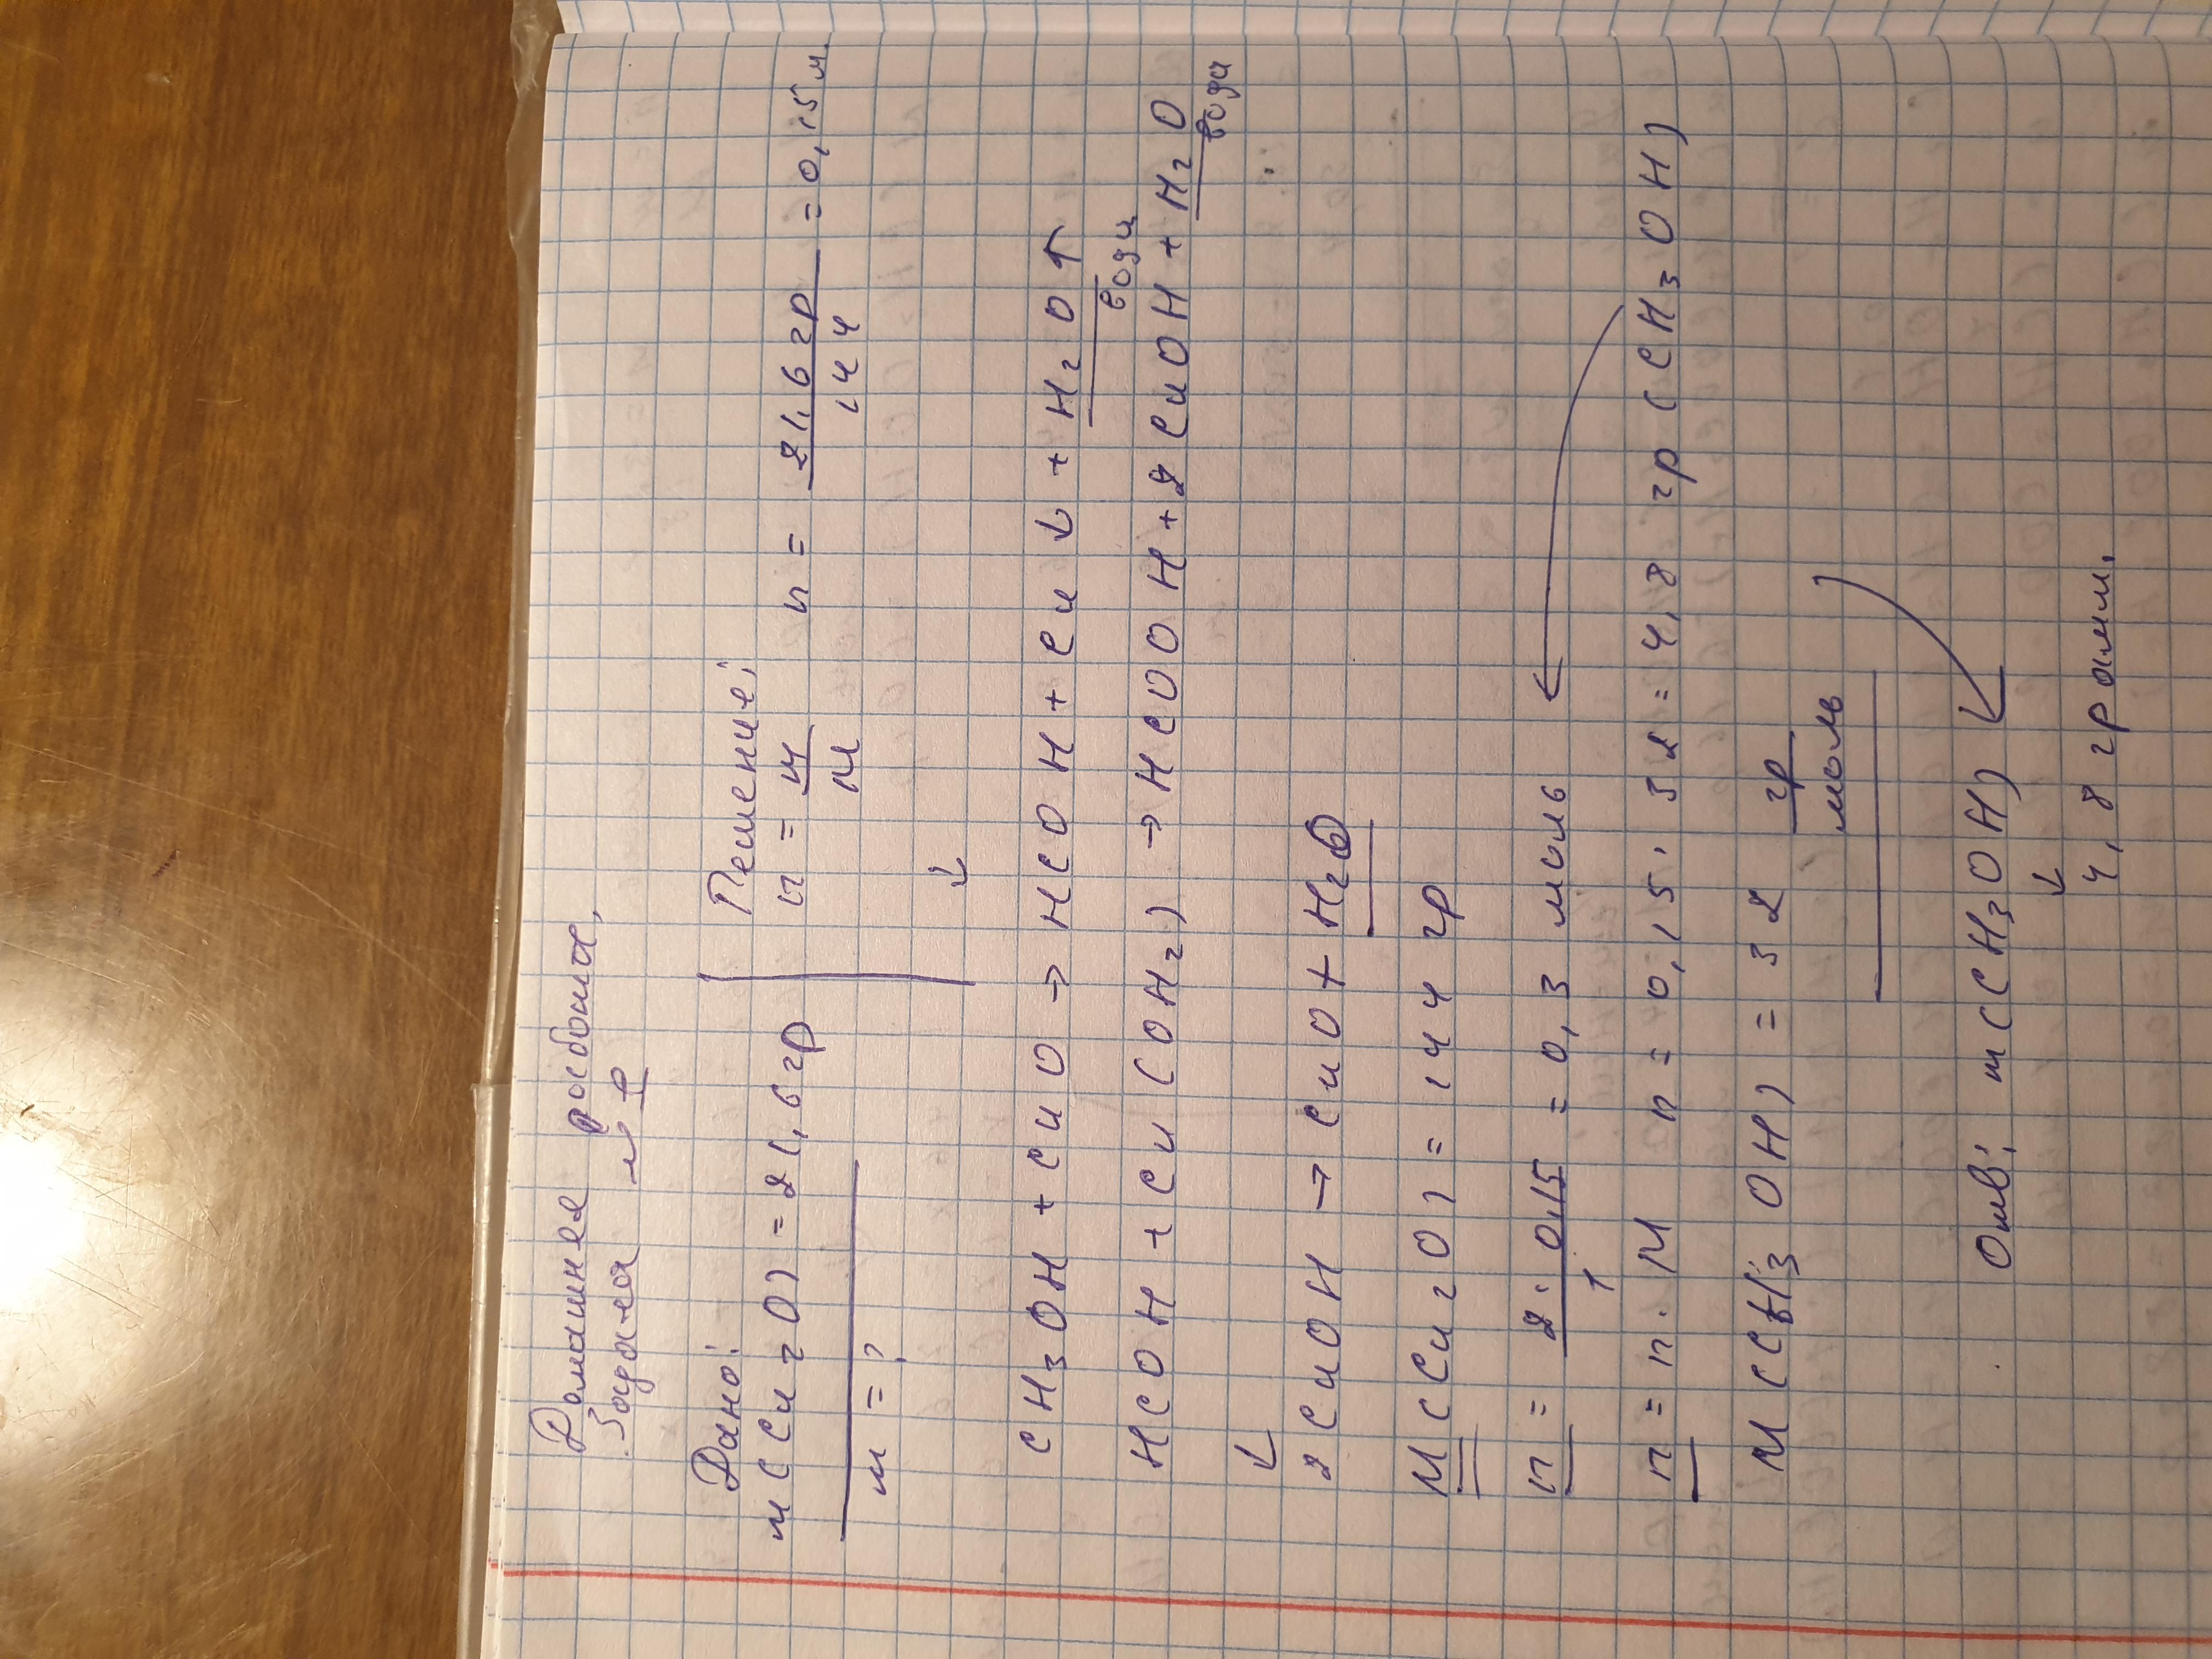 Домашняя работа,
Задача № 7
Дано: Решение:
m(Cu2O) = 21,6 гр n = m/M n = 21,6 гр/144 = 0,15 м
m = ?
CH3OH + CuO → HCOH + Cu↓ + H2O↑
вода
HCOH + Cu(OH2) → HCOOH + 2CuOH + H2O
вода
2CuOH → CuO + H2O
M(Cu2O) = 144 гр
n = 2 · 0,15/1 = 0,3 моль
n = n · M n = 0,15 · 32 = 4,8 гр (CH3OH)
M(CH3OH) = 32 гр/моль
Отв: m(CH3OH)
4,8 грамм.